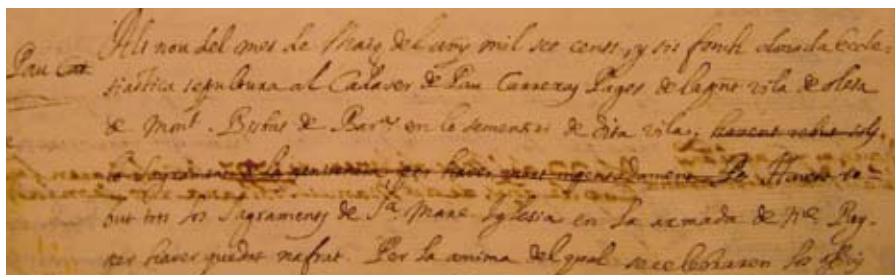 Pau Car.
Als nou del mes de Maig del any mil set cents, y sis fonch donada eccle-
siastica sepultura al Cadaver de Pau Carreras Pages de la pnt vila de olesa
de Mont. Bisbat de Barna en lo sementiri de dita vila, havent rebut sols
lo Sagrament de la penitencia per haver mort Havent re-
but tots los Sagraments de Sta. Mare Iglesia en la armada de Ntre. Rey
per haver quedat nafrat. Per la anima del qual se celebraren los offis